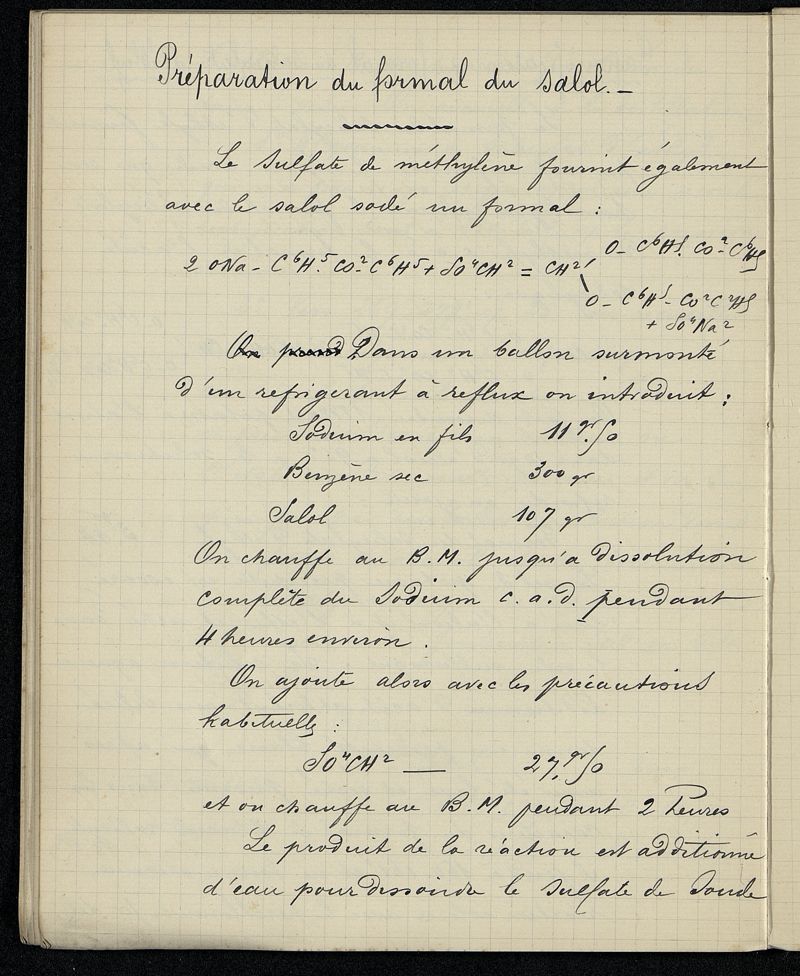 Préparation du formal du salol. –
Le sulfate de méthylène fournit également
avec le salol sodé un formal :
2 ONa – C⁶H⁵. CO² C⁶H⁵ + SO⁴CH² = CH² O – C⁶H⁵. CO² – C⁶H⁵
O – C⁶H⁵ – CO² C²H⁵
+ SO⁴Na²
Dans un ballon surmonté
d'un refrigerant à reflux on introduit :
Sodium en fils 11 gr. 50
Benzène sec 300 gr
Salol 107 gr
On chauffe au B. M. jusqu'a dissolution
complète du Sodium c. a. d. pendant
4 heures environ.
On ajoute alors avec les précautions
habituelles :
SO⁴CH² — 27, gr 50
et on chauffe au B. M. pendant 2 heures
Le produit de la réaction est additionné
d'eau pour dissoudre le sulfate de soude